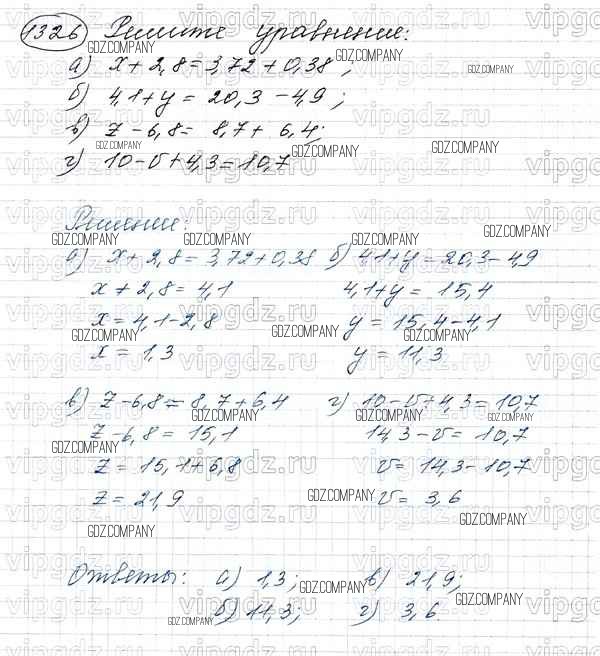 1326 Решите уравнение:
а) x + 2,8 = 3,72 + 0,38 ;
б) 4,1 + y = 20,3 - 4,9 ;
в) z - 6,8 = 8,7 + 6,4;
г) 10 - v + 4,3 = 10,7
Решение:
а) x + 2,8 = 3,72 + 0,38 б) 4,1 + y = 20,3 - 4,9
x + 2,8 = 4,1 4,1 + y = 15,4
x = 4,1 - 2,8 y = 15,4 - 4,1
x = 1,3 y = 11,3
в) z - 6,8 = 8,7 + 6,4 г) 10 - v + 4,3 = 10,7
z - 6,8 = 15,1 14,3 - v = 10,7
z = 15,1 + 6,8 v = 14,3 - 10,7
z = 21,9 v = 3,6
Ответы: а) 1,3; в) 21,9;
б) 11,3; г) 3,6
GDZ.COMPANY
vipgdz.ru